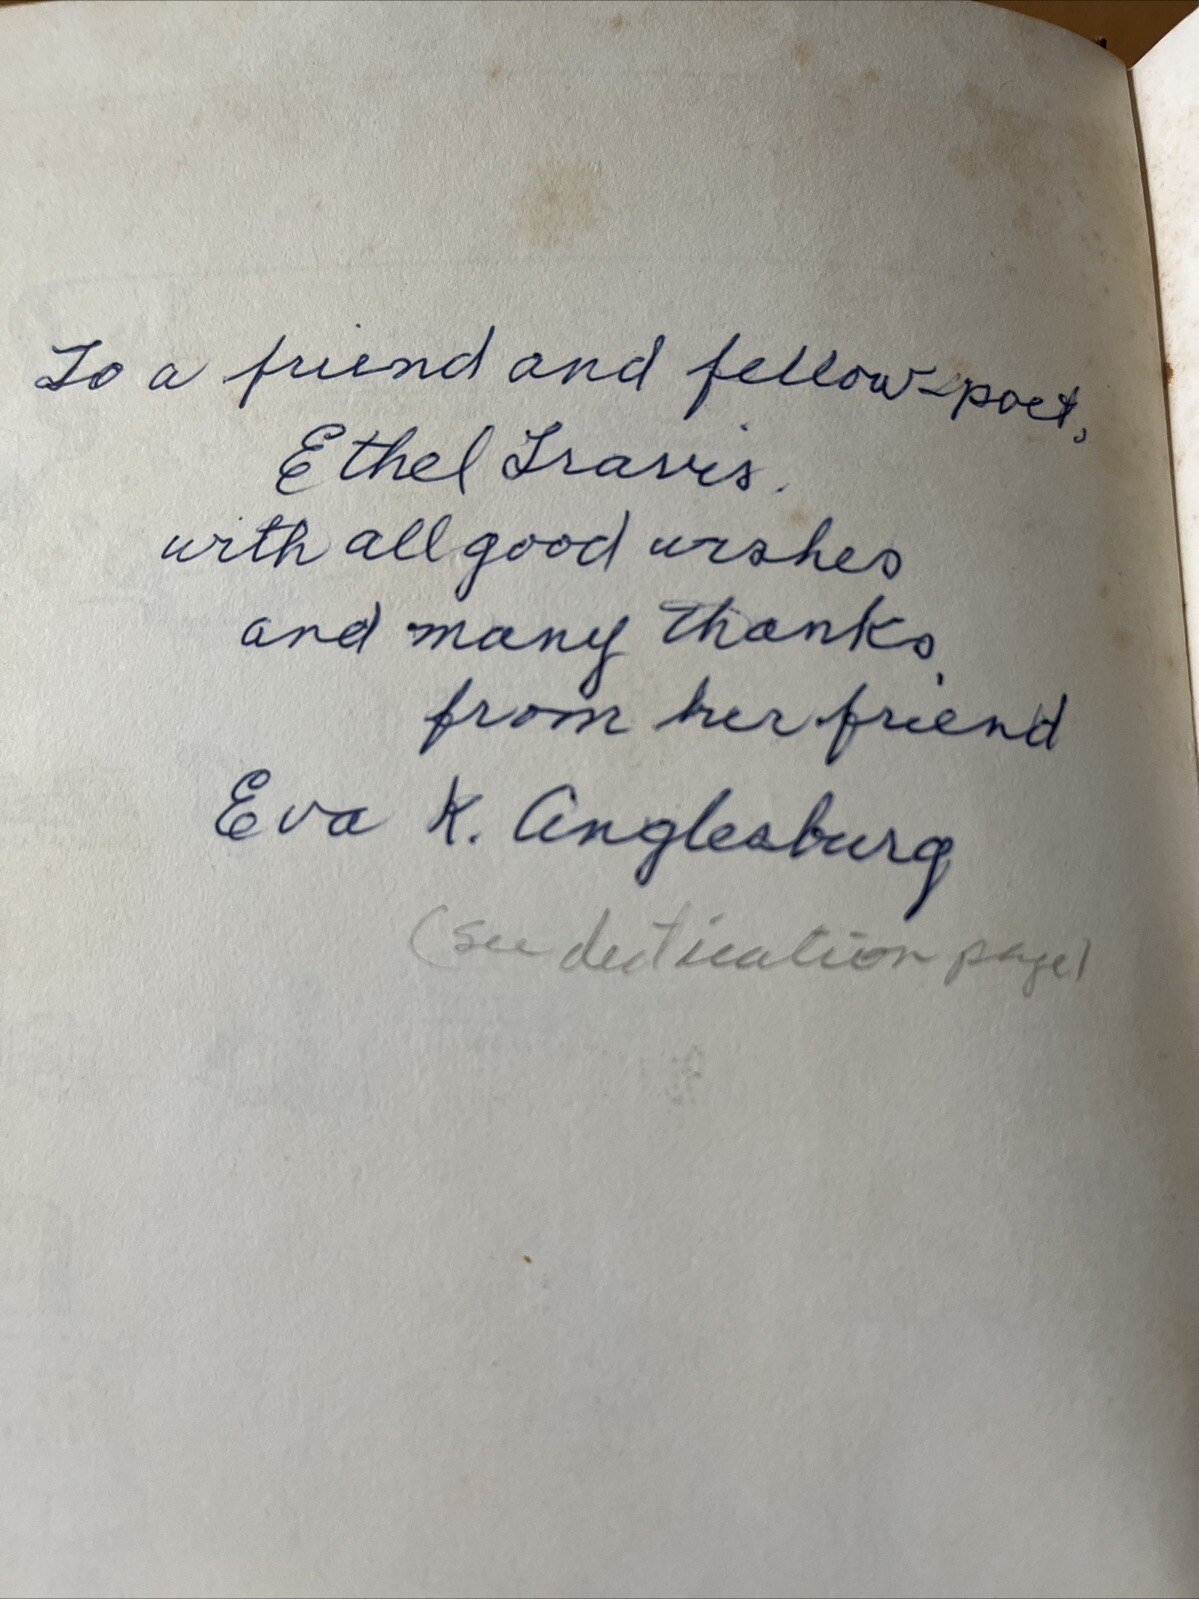 To a friend and fellow-poet,
Ethel Travis.
with all good wishes
and many thanks,
from her friend
Eva K. Anglesburg
(see dedication page)